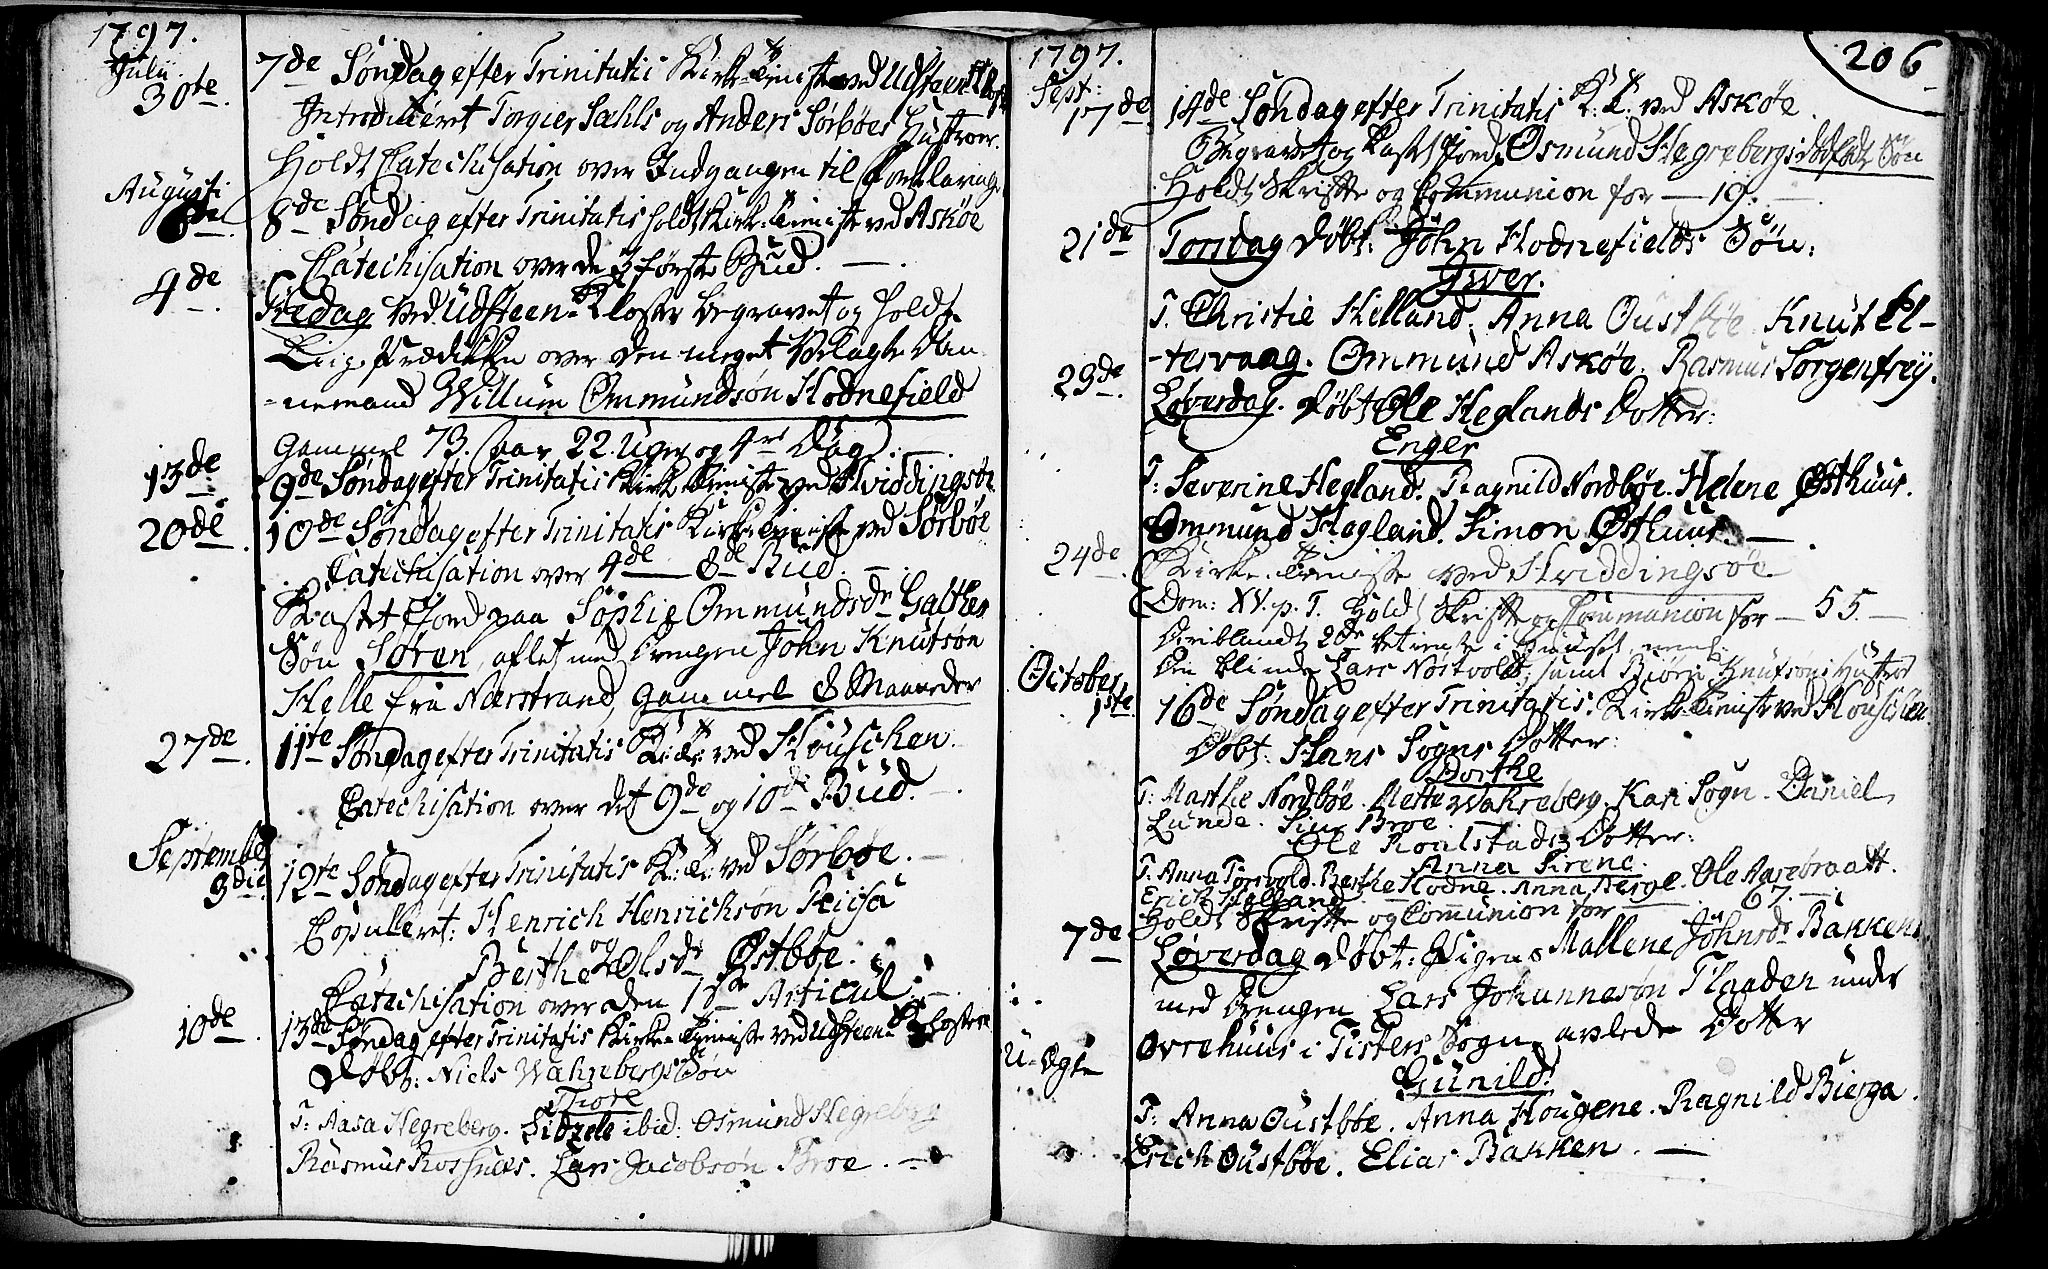 1797.
Julii
30te. 7de Søndag efter Trinitatis Kirke-Tieniste ved Udsteen Kloster
Introduceret Torgier Sahls og Anders Sørbøes Hustroer.
Holdt Catechisation over Indgangen til Forklaringen
Augusti
6te 8de Søndag efter Trinitatis holdt Kirke-Tieniste ved Askøe
Catechisation over de 3 første Bud. —
4de Fredag ved Udsteen-Kloster begravet og holdt
Liig-Prædikken over den meget Velagte Dan-
-nemand Willum Ommundsøn Hodnefield
Gammel 73. aar 22. Uger og 4re Dag. —
13de. 9de Søndag efter Trinitatis Kirke Tieniste ved Hviddingsøe
20de. 10de Søndag efter Trinitatis Kirke-Tieniste ved Sørbøe
Catechisation over 4de — 8de Bud. —
Kastet Jord paa Sophie Ommundsdr Galthes
Søn Søren, aflet med Drengen John Knutsøn
Helle fra Nærstrand, gammel 8 Maaneder
27de. 11te Søndag efter Trinitatis K: T: ved Houschen.
Catechisation over det 9de og 10de Bud. —
September
3die. 12te Søndag efter Trinitatis K: T: ved Sørbøe. —
Copuleret: Henrich Henrichsøn Reisa
og
Berthe Olsdr Østbøe.
Catechisation over den 1ste Articul. —
10de. 13de Søndag efter Trinitatis Kirke-Tieniste ved Udsteen Kloster
Døbt: Niels Wahrebergs Søn
Tiore
T: Aasa Hegreberg. Sidzele ibid: Osmund Hegreberg
Rasmus Rossnæs. Lars Jacobsøn Broe. —
1797. 206
Sept:
17de 14de Søndag efter Trinitatis K: T: ved Askøe.
Begravet og Kastet Jord paa Osmund Hegrebergs dødfødt Søn
Holdt Skrifte og Communion for — 19. —
21de Torsdag døbt: John Hodnefields Søn:
Iver.
T. Christie Helland. Anna Oustbøe Knut El-
-tervaag. Ommund Askøe. Rasmus Sorgenfrey.
23de. Løverdag. døbt Ole Heglands Dotter:
Enger
T: Severine Hegland. Ragnild Nordbøe. Helene Østhuus.
Ommund Hegland. Simon Østhuus. —
24de. Kirke-Tieniste ved Hviddingsøe
Dom: XV. p. T. Holdt Skrifte og Communion for — 55. —
Deriblandt 2de betient i Huuset, nemlig
Den blinde Lars Nostvold, samt Biørn Knutsøns Hustroe
October
1ste. 16de Søndag efter Trinitatis. Kirke-Tieniste ved Houschen
Døbt: Hans Sogns Dotter:
Dorthe
T: Marthe Nordbøe. Mette Wahreberg. Kari Sogn. Daniel
Lunde. Broe.
Ole Roalstads Dotter:
Anna Sirene.
T. Anna Torsvold. Berthe Hodne. Anna Berge. Ole Aarebraatt.
Erich Helland.
Holdt Skrifte og Communion for 67. —
7de Løverdag døbt: Pigens Mallene Johnsdr Bakkens
med Drengen Lars Johannesøn Flaaden under
U-ægte Ovrehuus i Tisters Sogn avlede Dotter
Gunild.
T: Anna Oustbøe. Anna Hougene. Ragnild Bierga.
Erich Oustbøe. Elias Bakken. —